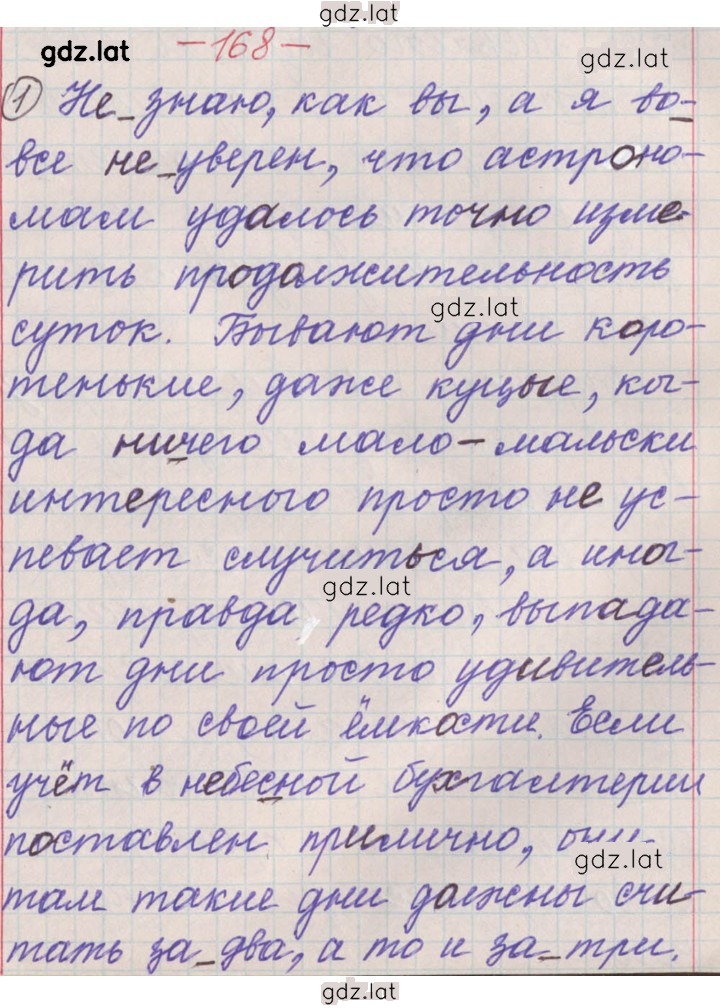 gdz.lat
gdz.lat
-168-
gdz.lat
① Не_знаю, как вы, а я во-
все не_уверен, что астроно-
мам удалось точно изме-
рить продолжительность
gdz.lat
суток. Бывают дни коро-
тенькие, даже куцые, ко-
гда ничего мало-мальски
интересного просто не ус-
певает случиться, а иног-
gdz.lat
да, правда, редко, выпада-
ют дни просто удивитель-
ные по своей ёмкости. Если
учёт в небесной бухгалтерии
поставлен прилично,
gdz.lat
там такие дни должны счи-
тать за_два, а то и за_три.
gdz.lat